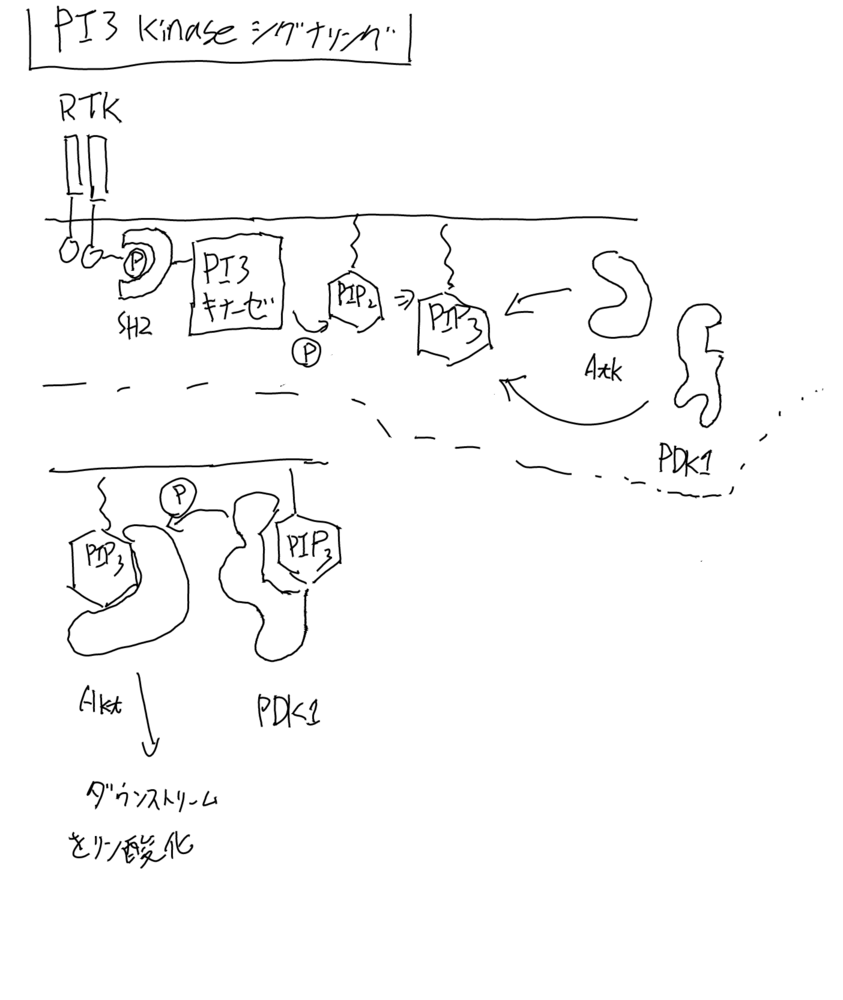 PI3 kinase シグナリング
RTK
P
SH2
PI3
キナーゼ
P
PIP2
⇒
PIP3
Atk
PDK1
P
PIP3
PIP3
Akt
PDK1
ダウンストリーム
をリン酸化